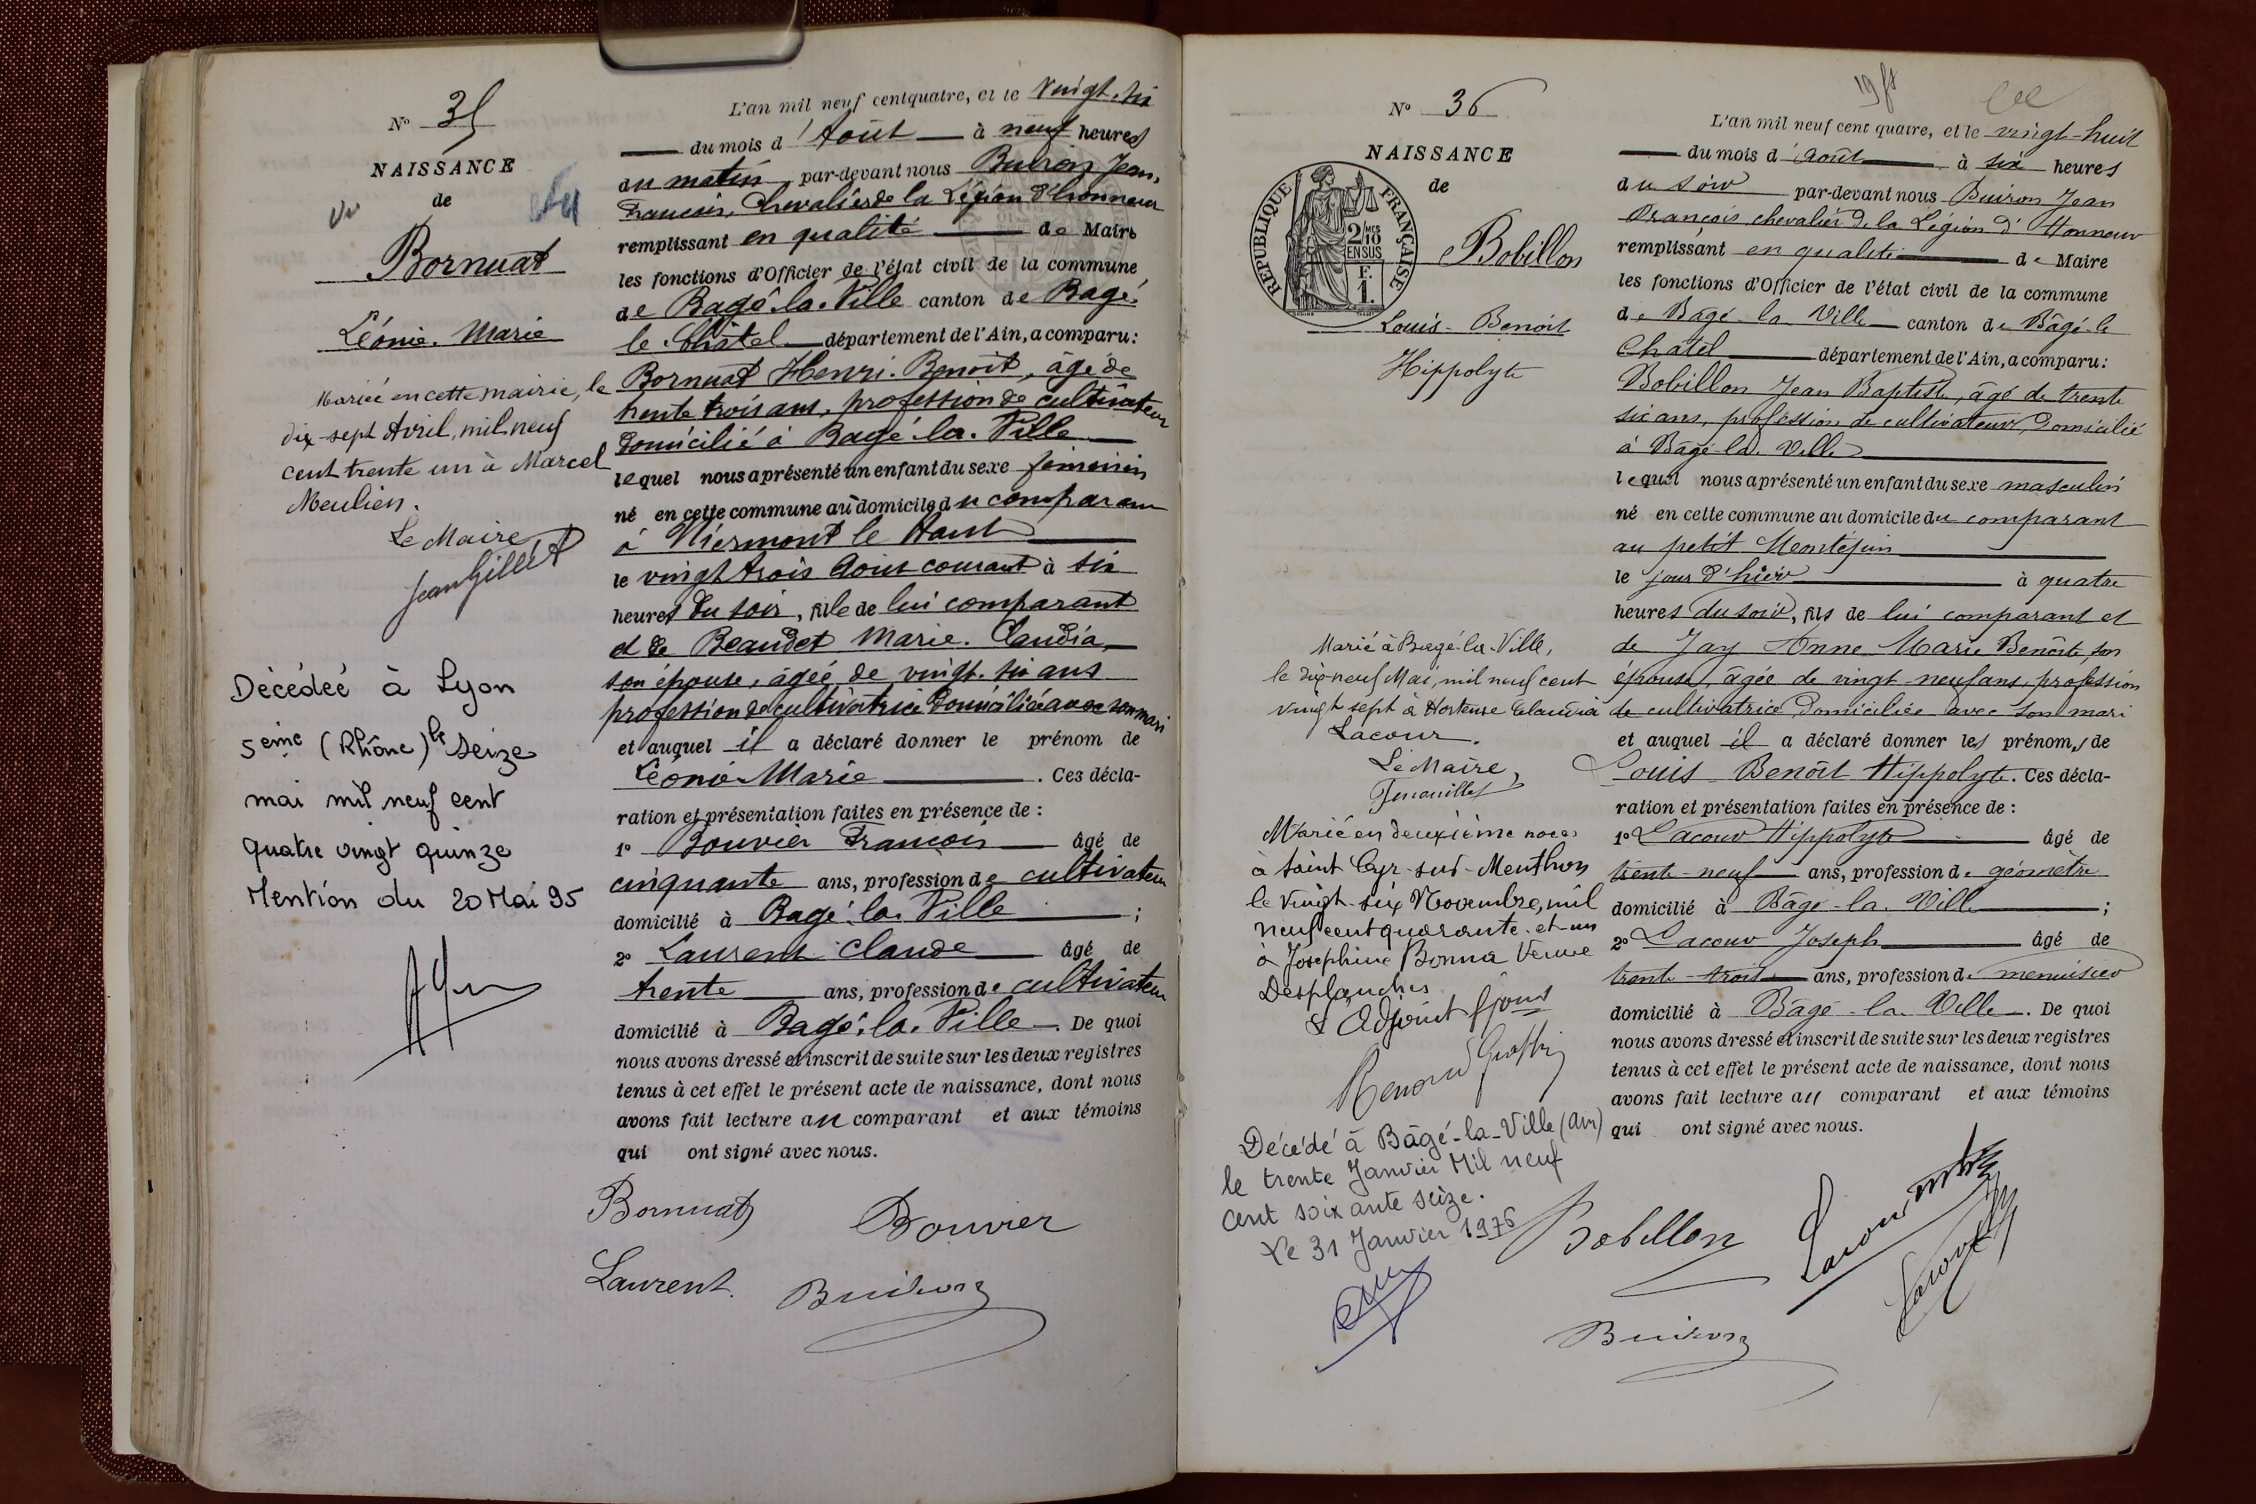 N° 35
NAISSANCE
de
Vu
Bornuat
Léonie. Marie
Mariée en cette mairie, le
dix-sept Avril, mil neuf
cent trente un à Marcel
Meulien.
Le Maire
Jean Gillet
Décédée à Lyon
5ème (Rhône) le seize
mai mil neuf cent
quatre vingt quinze
Mention du 20 Mai 95
L'an mil neuf cent quatre, et le Vingt. six
du mois d'Août à neuf heures
du matin par-devant nous Buiron Jean,
François, Chevalier de la Légion d'honneur
remplissant en qualité de Maire
les fonctions d'Officier de l'état civil de la commune
de Bagé-la-Ville canton de Bagé.
le Châtel département de l'Ain, a comparu:
Bornuat Henri. Benoît, âgé de
trente trois ans, profession de cultivateur
domicilié à Bagé-la. Ville
lequel nous a présenté un enfant du sexe féminin
né en cette commune au domicile du comparant
à Niermont le Haut
le vingt trois Août courant à six
heures du soir, fille de lui comparant
et de Beaudet Marie. Claudia,
son épouse, âgée de vingt. six ans
profession de cultivatrice domiciliée avec son mari
et auquel il a déclaré donner le prénom de
Léonie Marie. Ces décla-
ration et présentation faites en présence de :
1° Bouvier François âgé de
cinquante ans, profession de cultivateur
domicilié à Bagé. la. Ville ;
2° Laurent Claude âgé de
trente ans, profession de cultivateur
domicilié à Bagé. la. Ville. De quoi
nous avons dressé et inscrit de suite sur les deux registres
tenus à cet effet le présent acte de naissance, dont nous
avons fait lecture au comparant et aux témoins
qui ont signé avec nous.
Bornuat Bouvier
Laurent. Buiron
N° 36
NAISSANCE
de
REPUBLIQUE FRANÇAISE
2/10 EN SUS
F.
1.
Bobillon
Louis-Benoit
Hippolyte
Marié à Bagé-la-Ville,
le dix neuf Mai, mil neuf cent
vingt sept à Hortense Claudia
Lacour.
Le Maire,
Marié en deuxième noces
à Saint Cyr-sur-Menthon
le vingt-six Novembre, mil
neuf cent quarante-et-un
à Josephine Bonna Veuve
Desplanches
L'Adjoint
Décédé à Bâgé-la-Ville (Ain)
le trente Janvier Mil neuf
cent soixante seize.
Le 31 Janvier 1976
L'an mil neuf cent quatre, et le vingt-huit
du mois d'Août à six heures
du soir par-devant nous Buiron Jean
François chevalier de la Légion d'Honneur
remplissant en qualité de Maire
les fonctions d'Officier de l'état civil de la commune
de Bâgé-la-Ville canton de Bâgé-le
Châtel département de l'Ain, a comparu:
Bobillon Jean Baptiste, âgé de trente
six ans, profession de cultivateur, domicilié
à Bâgé-la-Ville
lequel nous a présenté un enfant du sexe masculin
né en cette commune au domicile du comparant
au petit Montépin
le jour d'hier à quatre
heures du soir, fils de lui comparant et
de Jay Anne Marie Benoîte, son
épouse, âgée de vingt-neuf ans, profession
de cultivatrice domiciliée avec son mari
et auquel il a déclaré donner les prénoms de
Louis Benoît Hippolyte. Ces décla-
ration et présentation faites en présence de :
1° Lacour Hippolyte âgé de
trente-neuf ans, profession de géomètre
domicilié à Bâgé-la-Ville ;
2° Lacour Joseph âgé de
trente-trois ans, profession de menuisier
domicilié à Bâgé-la-Ville. De quoi
nous avons dressé et inscrit de suite sur les deux registres
tenus à cet effet le présent acte de naissance, dont nous
avons fait lecture au comparant et aux témoins
qui ont signé avec nous.
Bobillon Lacour
Lacour
Buiron